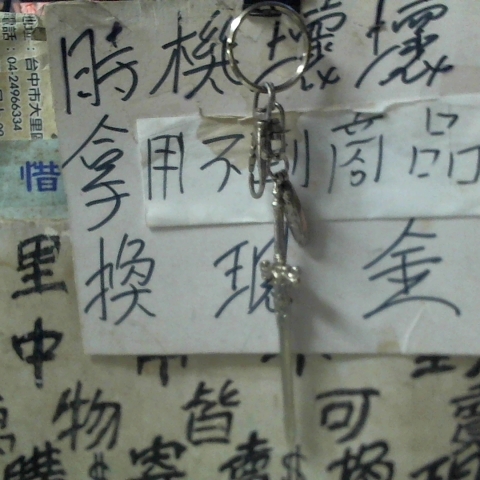 地址：台中市大里區
電話：04-24966334
惜
時機壞壞
拿用不到商品
換現金
里
中
物皆可賣
購$寄賣$換現